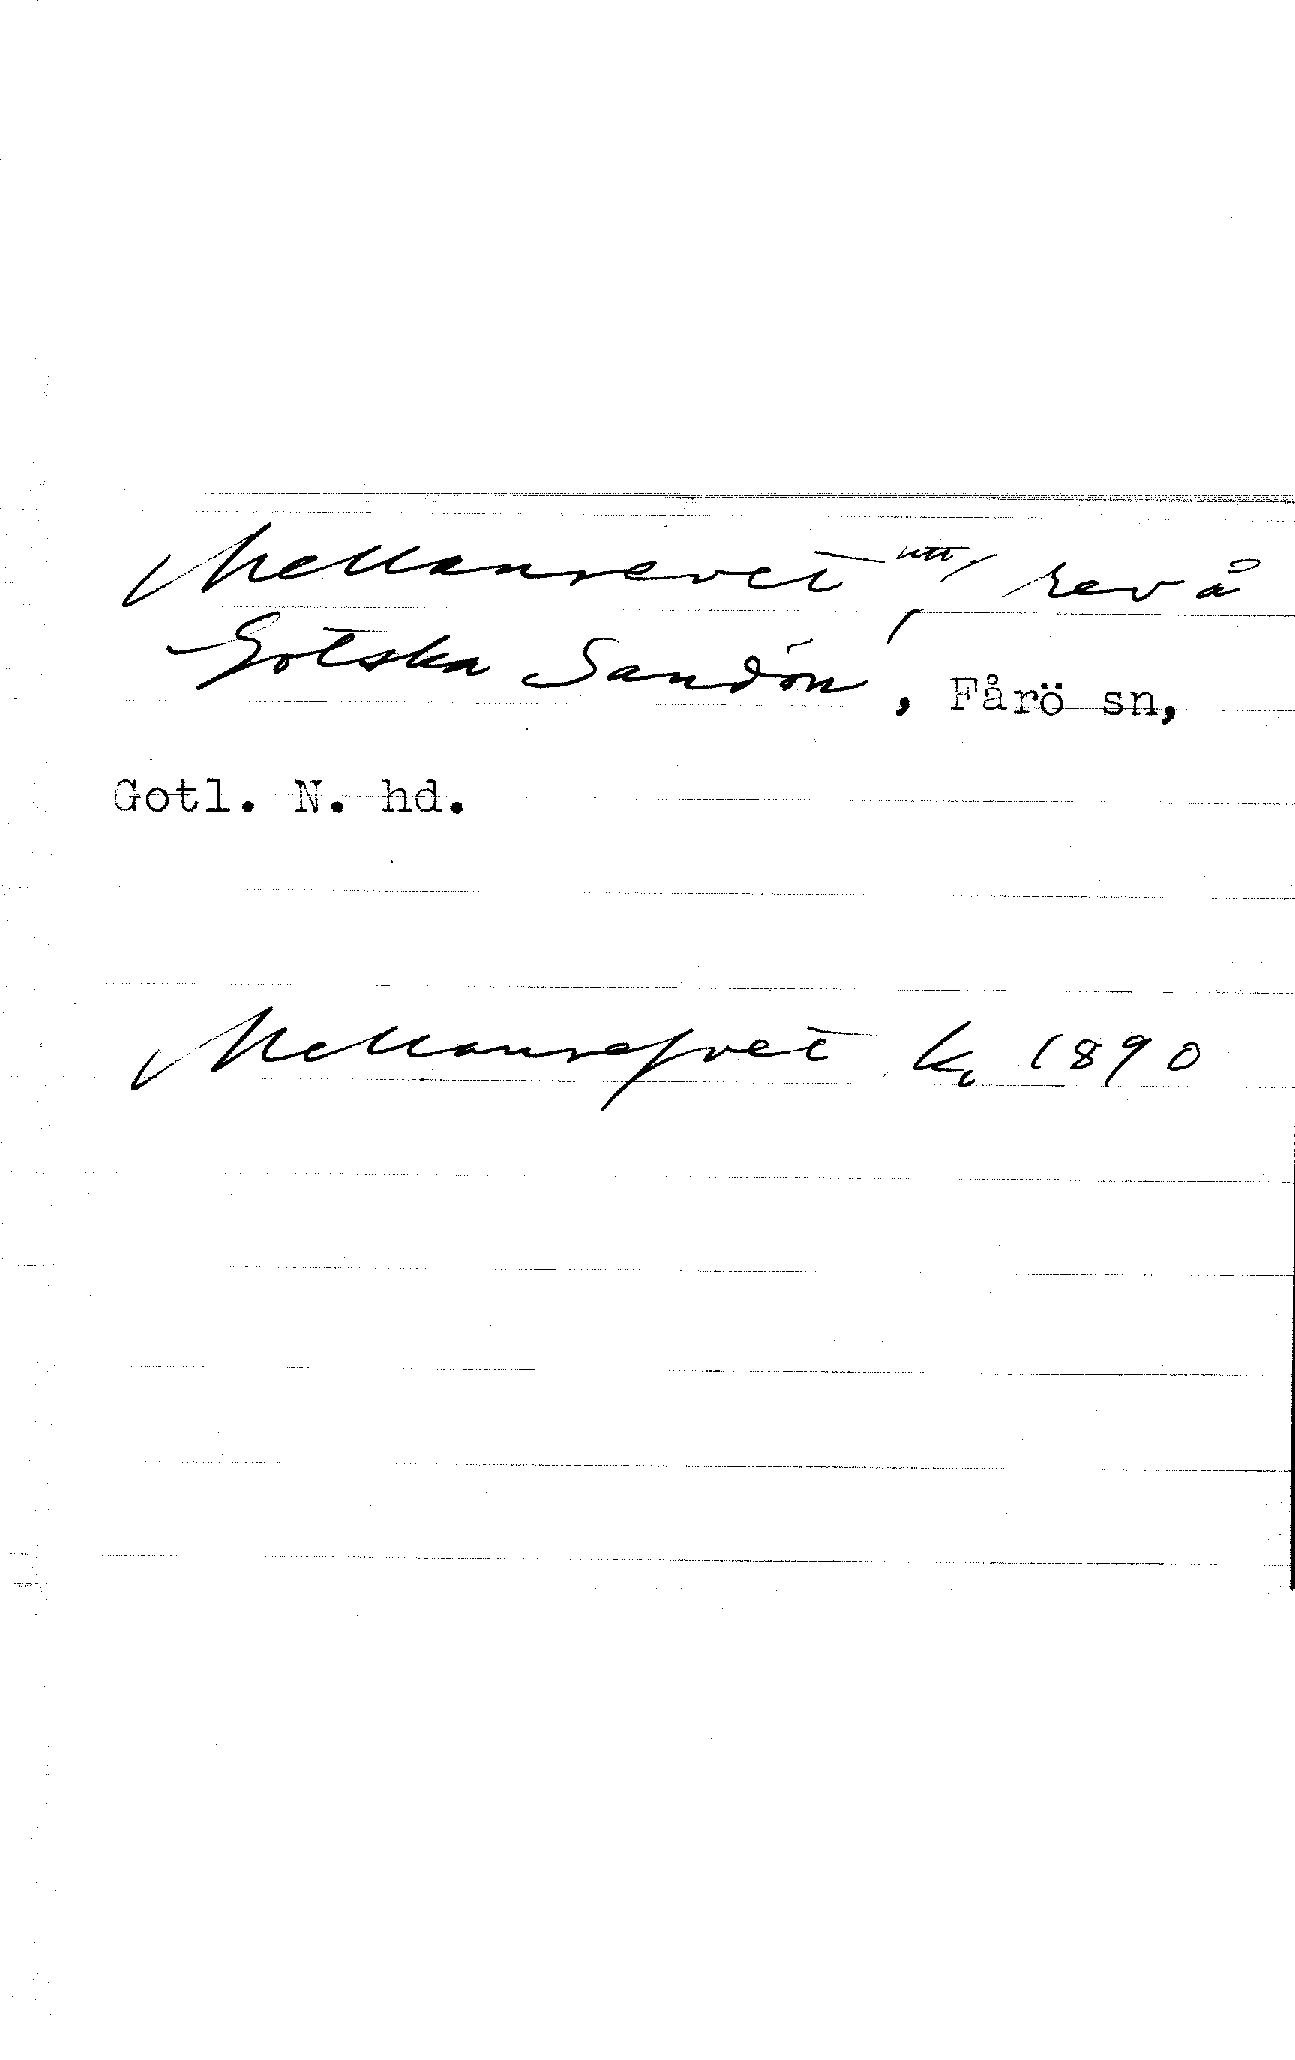 Mellanrevet utt/, rev å
Gotska Sandön, Fårö sn,
Gotl. N. hd.
Mellanrefvet k. 1890